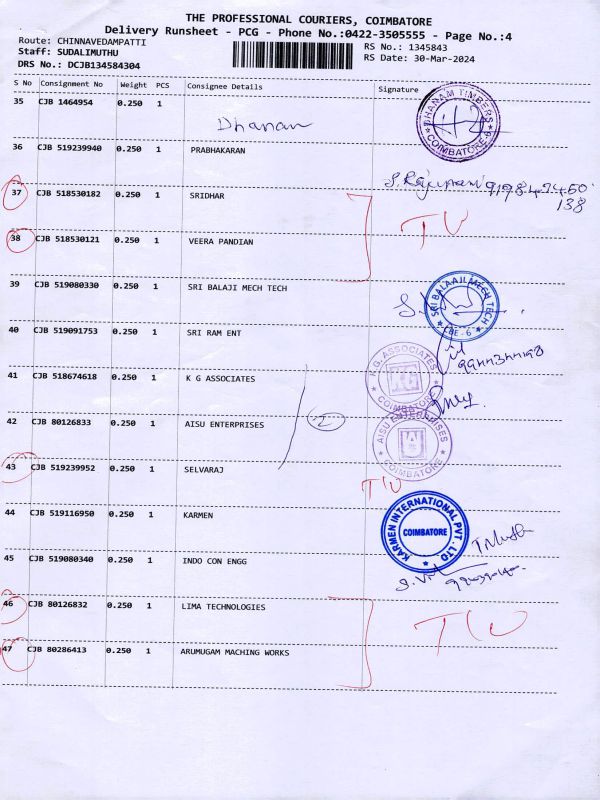 THE PROFESSIONAL COURIERS, COIMBATORE
Delivery Runsheet - PCG - Phone No.:0422-3505555 - Page No.:4
Route: CHINNAVEDAMPATTI
Staff: SUDALIMUTHU
DRS No.: DCJB134584304
RS No.: 1345843
RS Date: 30-Mar-2024
S No Consignment No Weight PCS Consignee Details Signature
35 CJB 1464954 0.250 1
Dhanam
DHANAM TIMBERS
COIMBATORE
36 CJB 519239940 0.250 1 PRABHAKARAN
37 CJB 518530182 0.250 1 SRIDHAR
138
TW
38 CJB 518530121 0.250 1 VEERA PANDIAN
39 CJB 519080330 0.250 1 SRI BALAJI MECH TECH
SRI BALAAJI MECH TECH
CBE - 6
40 CJB 519091753 0.250 1 SRI RAM ENT
41 CJB 518674618 0.250 1 K G ASSOCIATES
K.G. ASSOCIATES
KG
COIMBATORE
42 CJB 80126833 0.250 1 AISU ENTERPRISES
2
AISU ENTERPRISES
COIMBATORE
43 CJB 519239952 0.250 1 SELVARAJ
TW
44 CJB 519116950 0.250 1 KARMEN
KARMEN INTERNATIONAL PVT. LTD.
COIMBATORE
45 CJB 519080340 0.250 1 INDO CON ENGG
46 CJB 80126832 0.250 1 LIMA TECHNOLOGIES
TW
47 CJB 80286413 0.250 1 ARUMUGAM MACHING WORKS